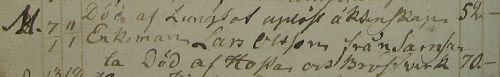 Död af Lungsot upløst äktenskap 52 –
M. 7/1 11/1 Enkeman Lars Olsson från
la Död af Hosta och Bröstverk 70. –